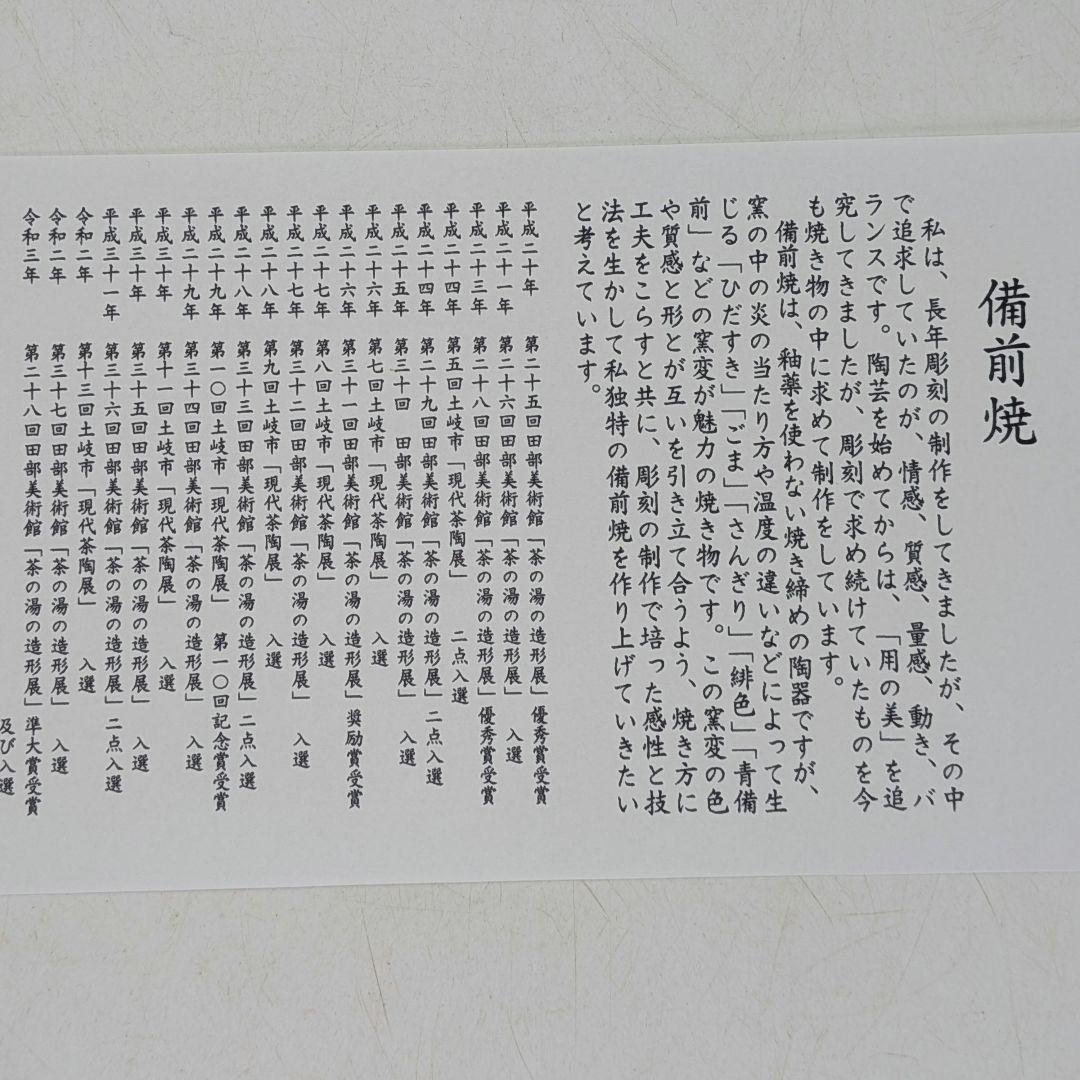 備前焼
私は、長年彫刻の制作をしてきましたが、その中
で追求していたのが、情感、質感、量感、動き、バ
ランスです。陶芸を始めてからは、「用の美」を追
究してきましたが、彫刻で求め続けていたものを今
も焼き物の中に求めて制作をしています。
備前焼は、釉薬を使わない焼き締めの陶器ですが、
窯の中の炎の当たり方や温度の違いなどによって生
じる「ひだすき」「ごま」「さんぎり」「緋色」「青備
前」などの窯変が魅力の焼き物です。この窯変の色
や質感と形とが互いを引き立て合うよう、焼き方に
工夫をこらすと共に、彫刻の制作で培った感性と技
法を生かして私独特の備前焼を作り上げていきたい
と考えています。
平成二十年 第二十五回田部美術館「茶の湯の造形展」優秀賞受賞
平成二十一年 第二十六回田部美術館「茶の湯の造形展」 入選
平成二十三年 第二十八回田部美術館「茶の湯の造形展」優秀賞受賞
平成二十四年 第五回土岐市「現代茶陶展」 二点入選
平成二十四年 第二十九回田部美術館「茶の湯の造形展」二点入選
平成二十五年 第三十回 田部美術館「茶の湯の造形展」 入選
平成二十六年 第七回土岐市「現代茶陶展」 入選
平成二十六年 第三十一回田部美術館「茶の湯の造形展」奨励賞受賞
平成二十七年 第八回土岐市「現代茶陶展」 入選
平成二十七年 第三十二回田部美術館「茶の湯の造形展」 入選
平成二十八年 第九回土岐市「現代茶陶展」 入選
平成二十八年 第三十三回田部美術館「茶の湯の造形展」二点入選
平成二十九年 第一〇回土岐市「現代茶陶展」 第一〇回記念賞受賞
平成二十九年 第三十四回田部美術館「茶の湯の造形展」 入選
平成三十年 第十一回土岐市「現代茶陶展」 入選
平成三十年 第三十五回田部美術館「茶の湯の造形展」 入選
平成三十一年 第三十六回田部美術館「茶の湯の造形展」二点入選
令和二年 第十三回土岐市「現代茶陶展」 入選
令和二年 第三十七回田部美術館「茶の湯の造形展」 入選
令和三年 第二十八回田部美術館「茶の湯の造形展」準大賞受賞
及び入選